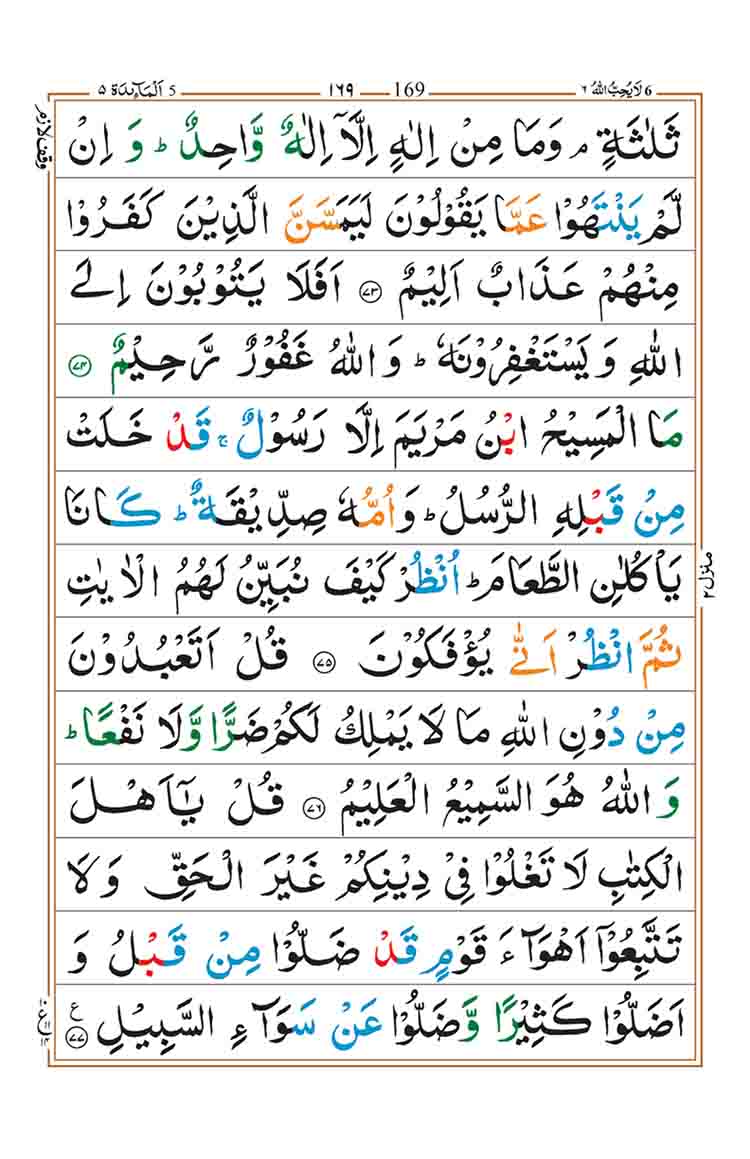 5 اَلْمَآئِدَة ٥ ١٦٩ 169 6 لَا يُحِبُّ اللهُ ٦
وقف لازم
ثَلٰثَةٍ ۘ وَمَا مِنْ اِلٰهٍ اِلَّاۤ اِلٰهٌ وَّاحِدٌ ؕ وَ اِنْ
لَّمْ يَنْتَهُوْا عَمَّا يَقُوْلُوْنَ لَيَمَسَّنَّ الَّذِيْنَ كَفَرُوْا
مِنْهُمْ عَذَابٌ اَلِيْمٌ ﴿٧٣﴾ اَفَلَا يَتُوْبُوْنَ اِلَى
اللهِ وَيَسْتَغْفِرُوْنَهٗ ؕ وَاللهُ غَفُوْرٌ رَّحِيْمٌ ﴿٧٤﴾
مَا الْمَسِيْحُ ابْنُ مَرْيَمَ اِلَّا رَسُوْلٌ ۚ قَدْ خَلَتْ
مِنْ قَبْلِهِ الرُّسُلُ ؕ وَاُمُّهٗ صِدِّيْقَةٌ ؕ كَانَا
يَاْكُلٰنِ الطَّعَامَ ؕ اُنْظُرْ كَيْفَ نُبَيِّنُ لَهُمُ الْاٰيٰتِ
ثُمَّ انْظُرْ اَنّٰى يُؤْفَكُوْنَ ﴿٧٥﴾ قُلْ اَتَعْبُدُوْنَ
مِنْ دُوْنِ اللهِ مَا لَا يَمْلِكُ لَكُمْ ضَرًّا وَّلَا نَفْعًا ؕ
وَ اللهُ هُوَ السَّمِيْعُ الْعَلِيْمُ ﴿٧٦﴾ قُلْ يٰۤاَهْلَ
الْكِتٰبِ لَا تَغْلُوْا فِيْ دِيْنِكُمْ غَيْرَ الْحَقِّ وَلَا
تَتَّبِعُوْۤا اَهْوَآءَ قَوْمٍ قَدْ ضَلُّوْا مِنْ قَبْلُ وَ
اَضَلُّوْا كَثِيْرًا وَّضَلُّوْا عَنْ سَوَآءِ السَّبِيْلِ ﴿٧٧﴾ ع
منزل ٢